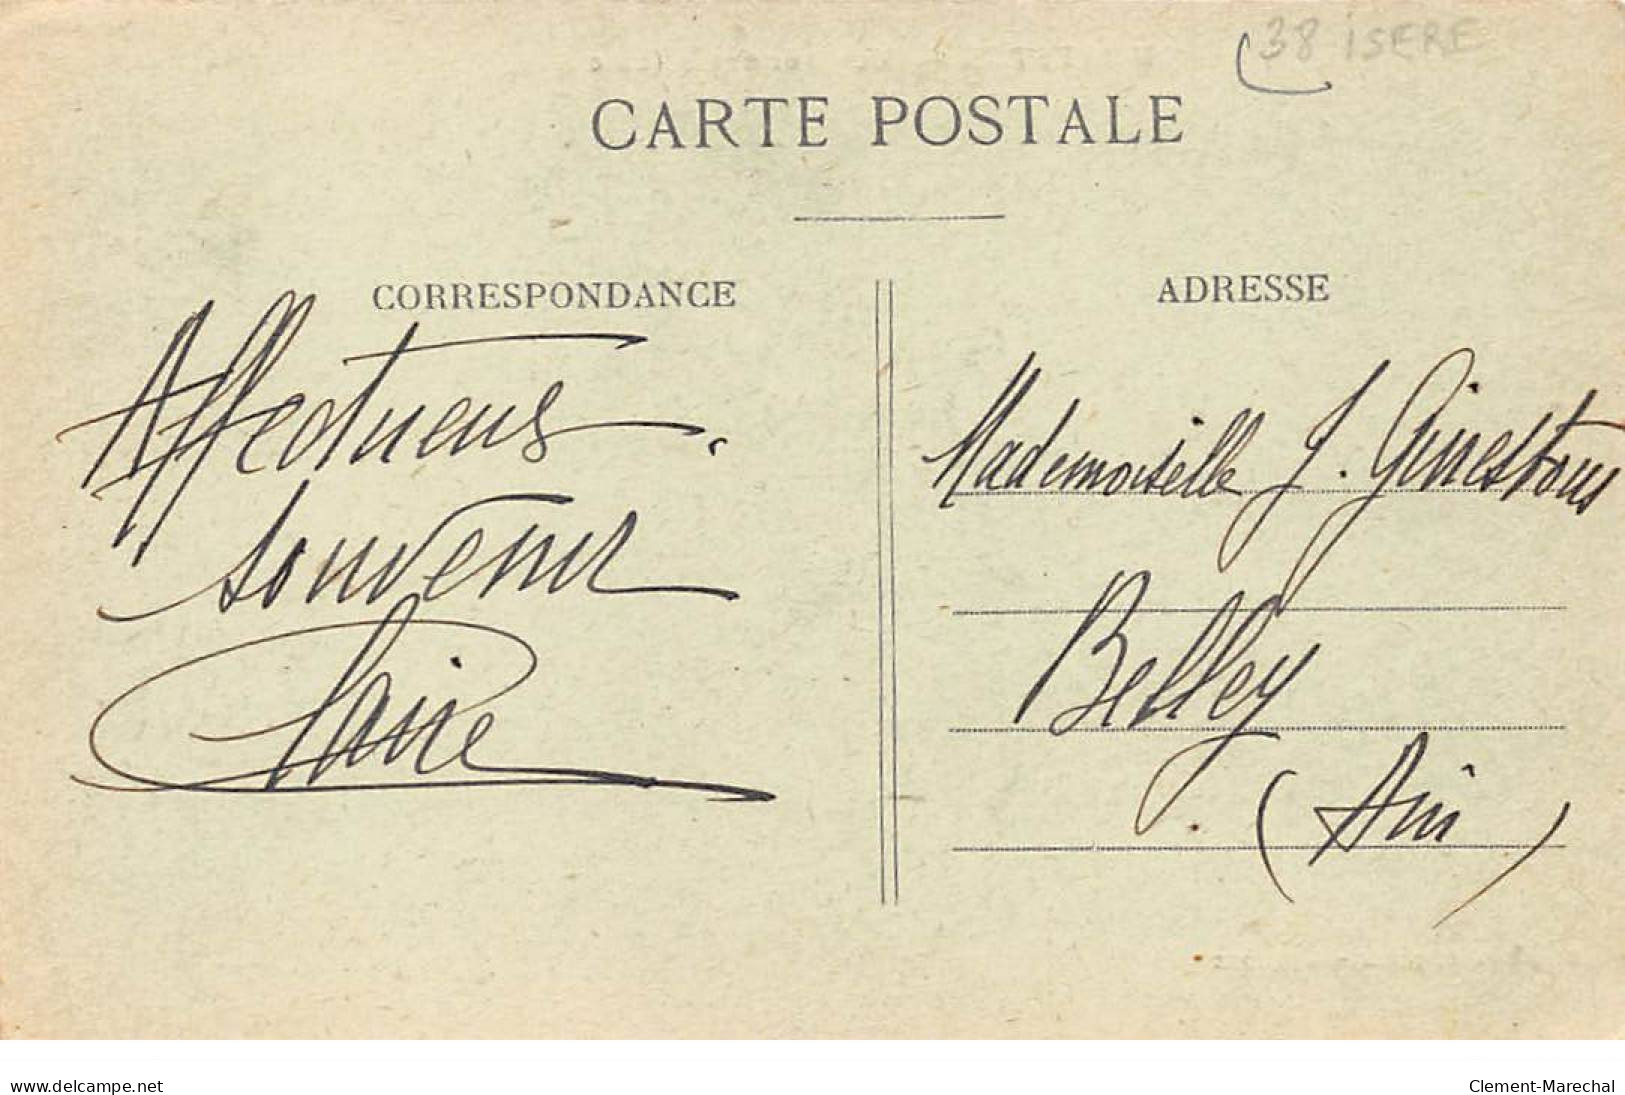 38 ISERE
CARTE POSTALE
CORRESPONDANCE
ADRESSE
Affectueux
souvenir
Claire
Mademoiselle J. Ginestous
Belley
(Ain)
www.delcampe.net
Clement-Marechal